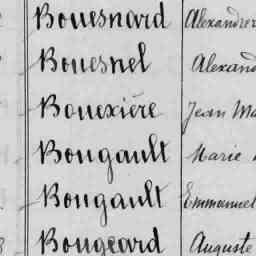 Bouesnard Alexandre
Bouesnel Alexand
Bouexière Jean Ma
Bougault Marie
Bougault Emmanuel
Bougeard Auguste